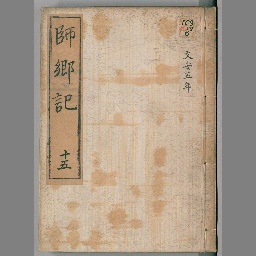 師郷記
十五
文安五年